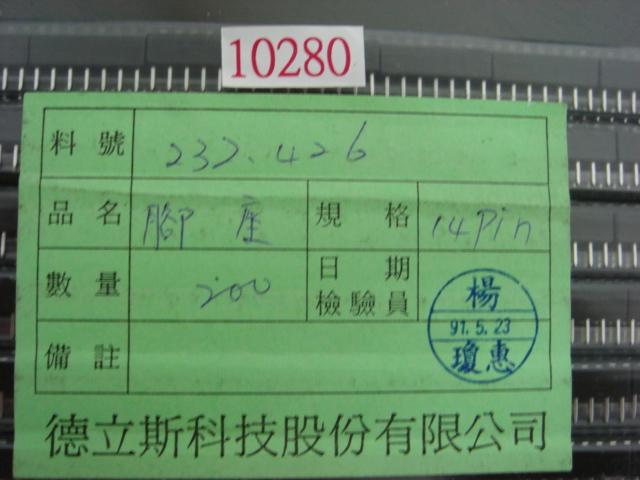 10280
料號 232.426
品名 腳座 規格 14Pin
數量 200 日期 檢驗員
備註
楊
91.5.23
瓊惠
德立斯科技股份有限公司